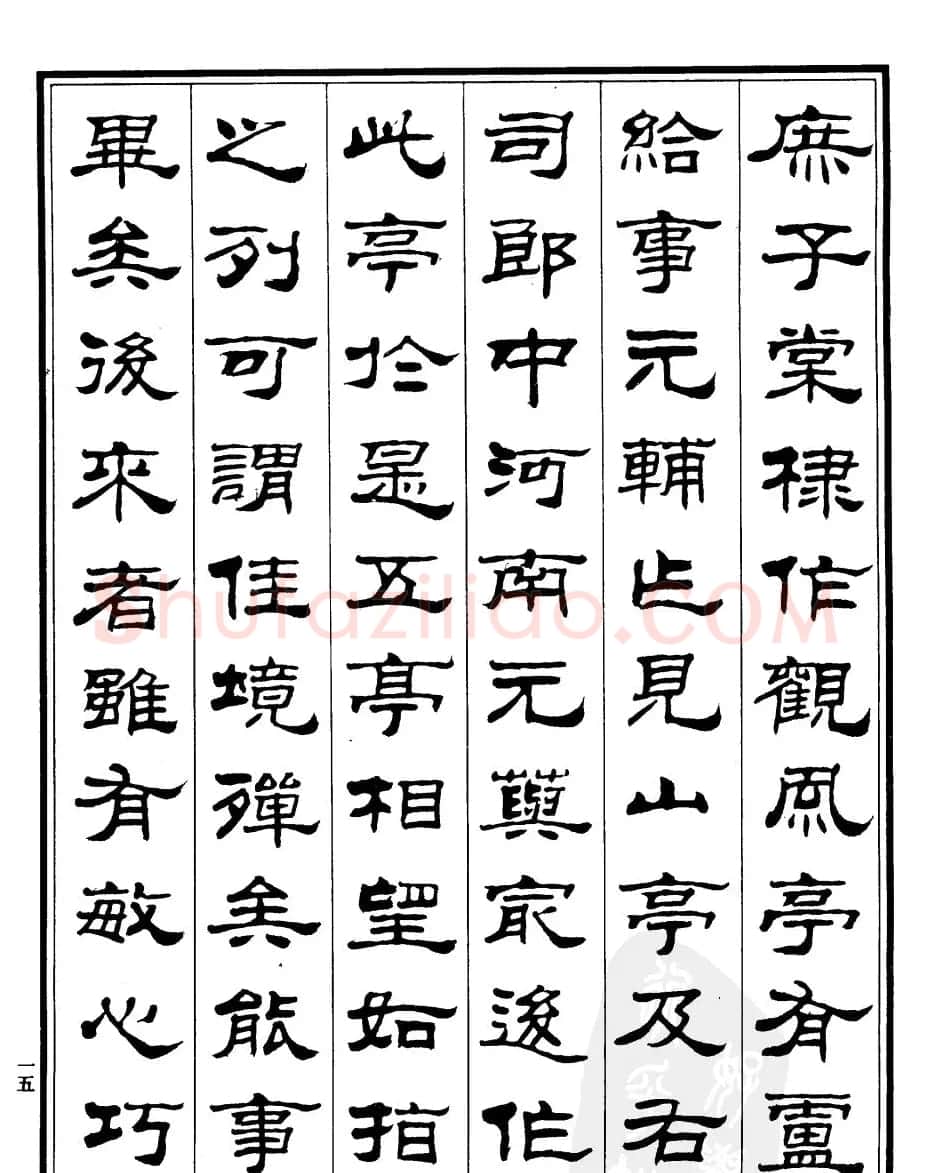 庶子棠棣作觀風亭有盧
給事元輔作見山亭及右
司郎中河南元藇最後作
此亭於是五亭相望如指
之列可謂佳境殫矣能事
畢矣後來者雖有敏心巧
一五
shufaziliao.COM